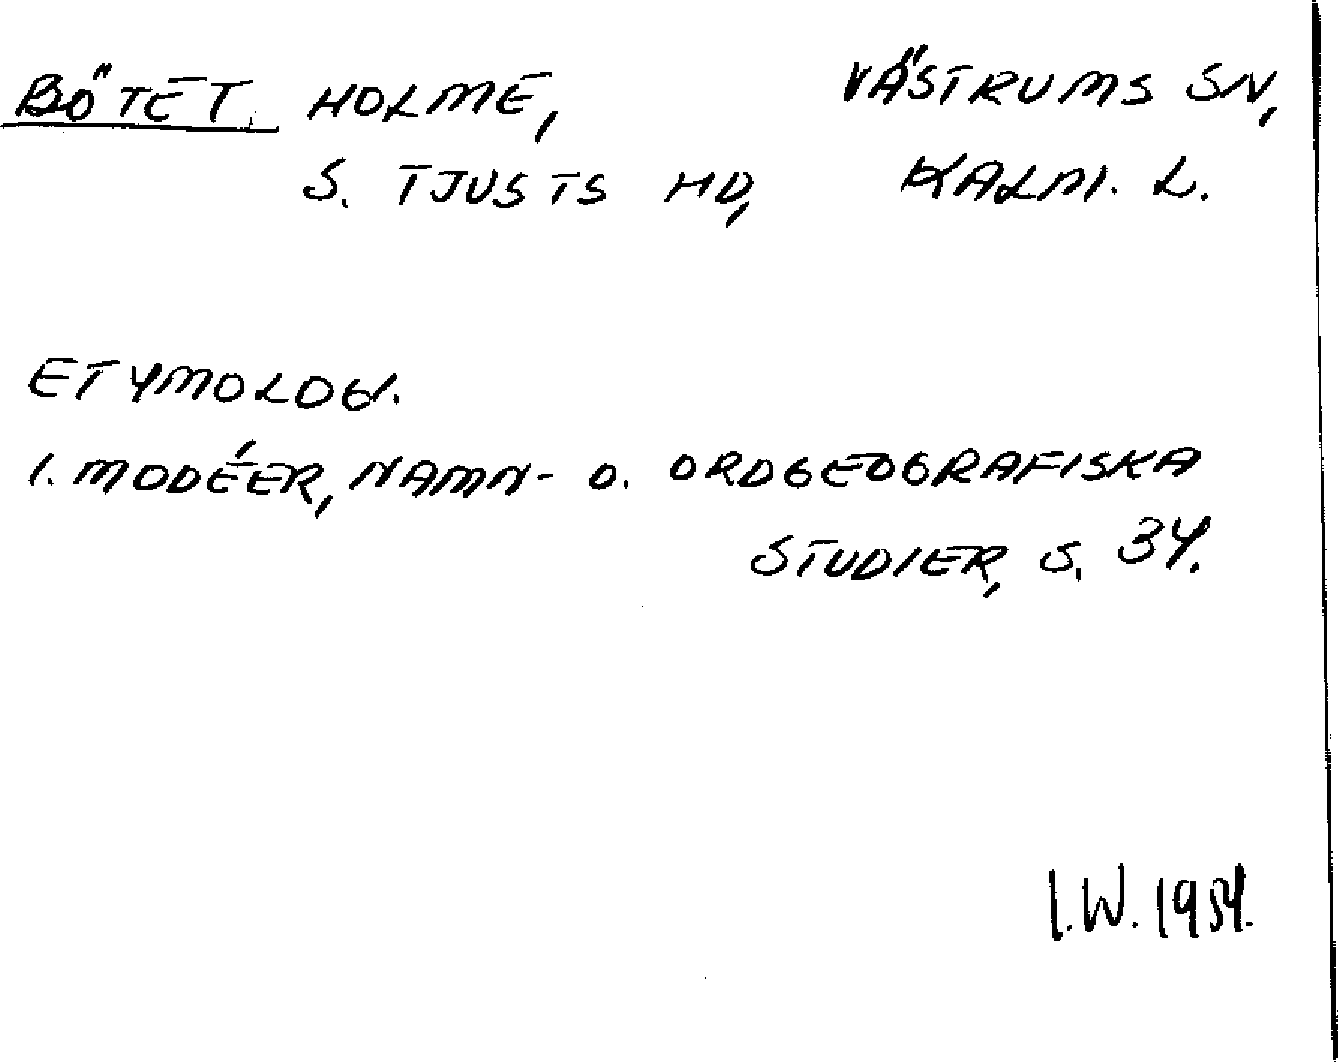 BÖTET. HOLME, VÄSTRUMS SN,
S. TJUSTS HD, KALM. L.
ETYMOLOGI.
I. MODÉER, NAMN- O. ORDGEOGRAFISKA
STUDIER, S. 34.
I.W. 1954.